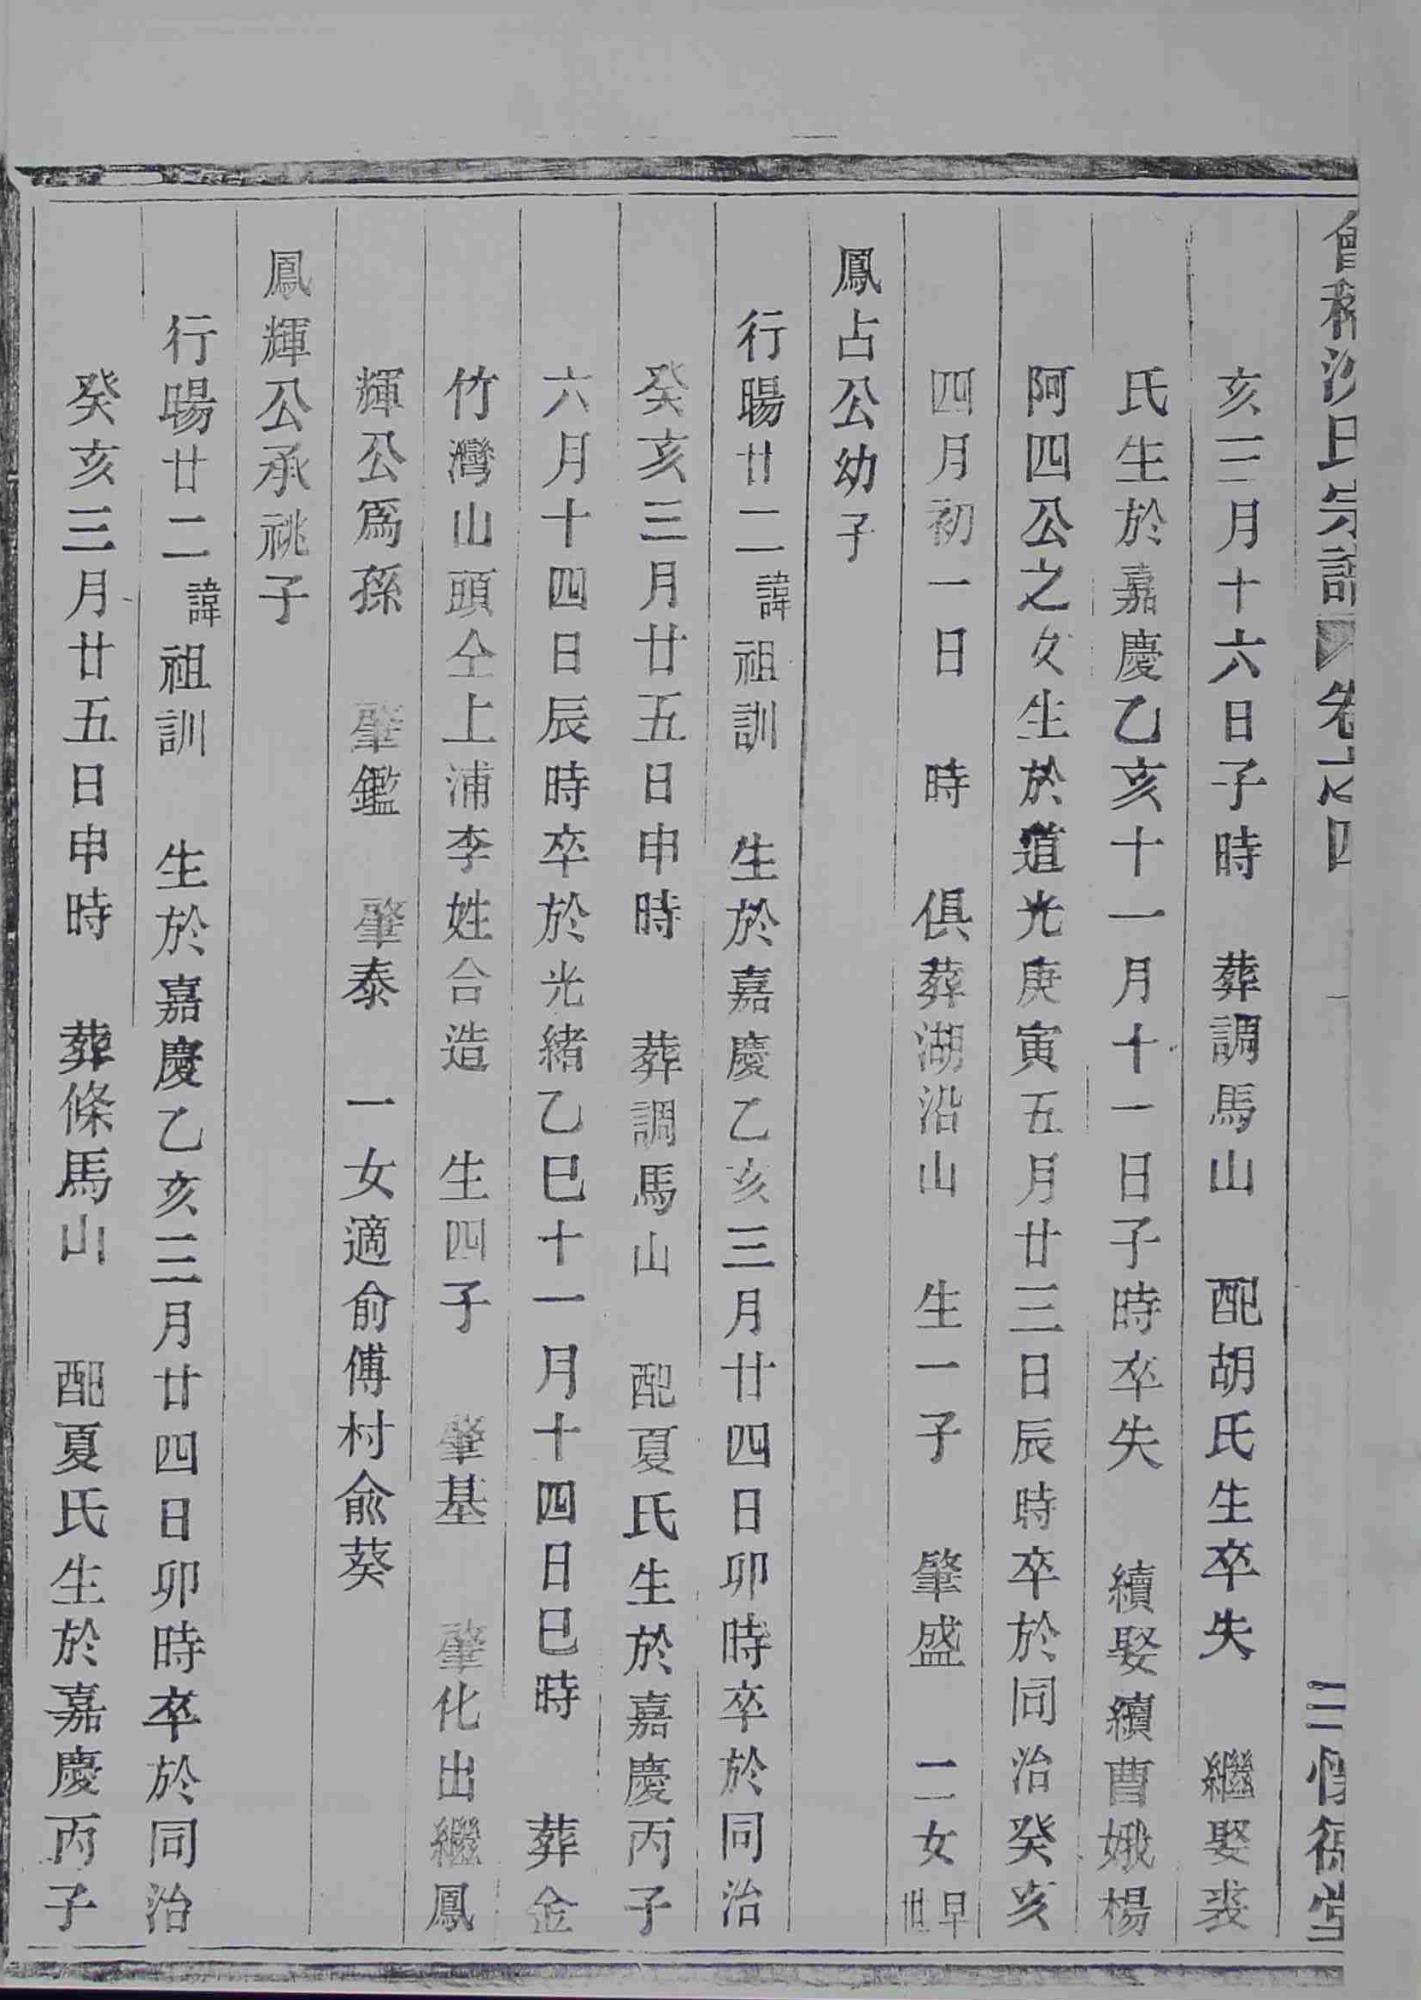 會稽沈氏宗譜 卷之四 三 懷德堂
亥三月十六日子時 葬調馬山 配胡氏生卒失 繼娶裘
氏生於嘉慶乙亥十一月十一日子時卒失 續娶續曹娥楊
阿四公之女生於道光庚寅五月廿三日辰時卒於同治癸亥
四月初一日 時 俱葬湖沿山 生一子 肇盛 二女早世
鳳占公幼子
行暘廿二諱祖訓 生於嘉慶乙亥三月廿四日卯時卒於同治
癸亥三月廿五日申時 葬調馬山 配夏氏生於嘉慶丙子
六月十四日辰時卒於光緒乙巳十一月十四日巳時 葬金
竹灣山頭仝上浦李姓合造 生四子 肇基 肇化出繼鳳
輝公爲孫 肇鑑 肇泰 一女適俞傅村俞葵
鳳輝公承祧子
行暘廿二諱祖訓 生於嘉慶乙亥三月廿四日卯時卒於同治
癸亥三月廿五日申時 葬條馬山 配夏氏生於嘉慶丙子